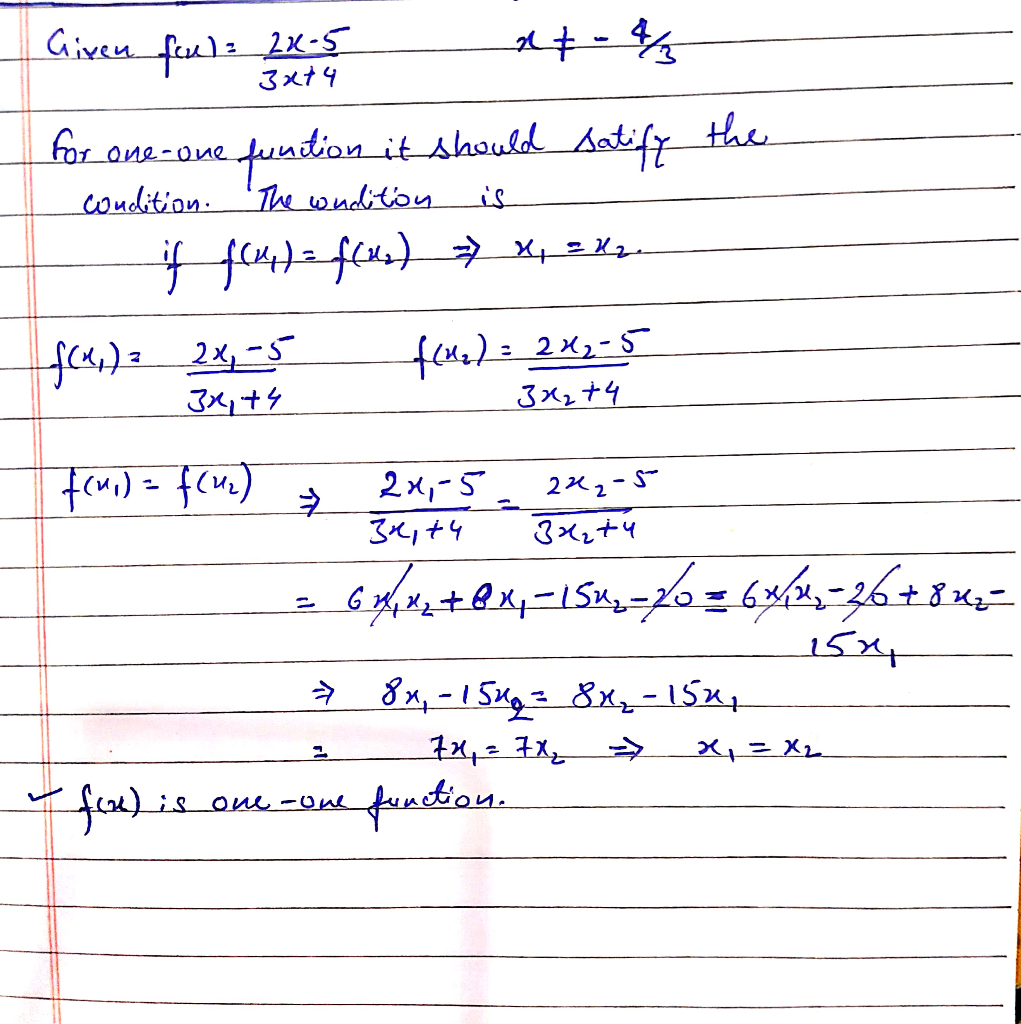 Given f(x) = 2x-5 / 3x+4 x ≠ - 4/3
for one-one funtion it should satify the
condition. The condition is
if f(x₁) = f(x₂) ⇒ x₁ = x₂.
f(x₁) = 2x₁-5 / 3x₁+4 f(x₂) = 2x₂-5 / 3x₂+4
f(x₁) = f(x₂) ⇒ 2x₁-5 / 3x₁+4 = 2x₂-5 / 3x₂+4
= 6x₁x₂ + 8x₁ - 15x₂ - 20 = 6x₁x₂ - 20 + 8x₂ -
15x₁
⇒ 8x₁ - 15x₂ = 8x₂ - 15x₁
= 7x₁ = 7x₂ ⇒ x₁ = x₂
✓ f(x) is one-one function.